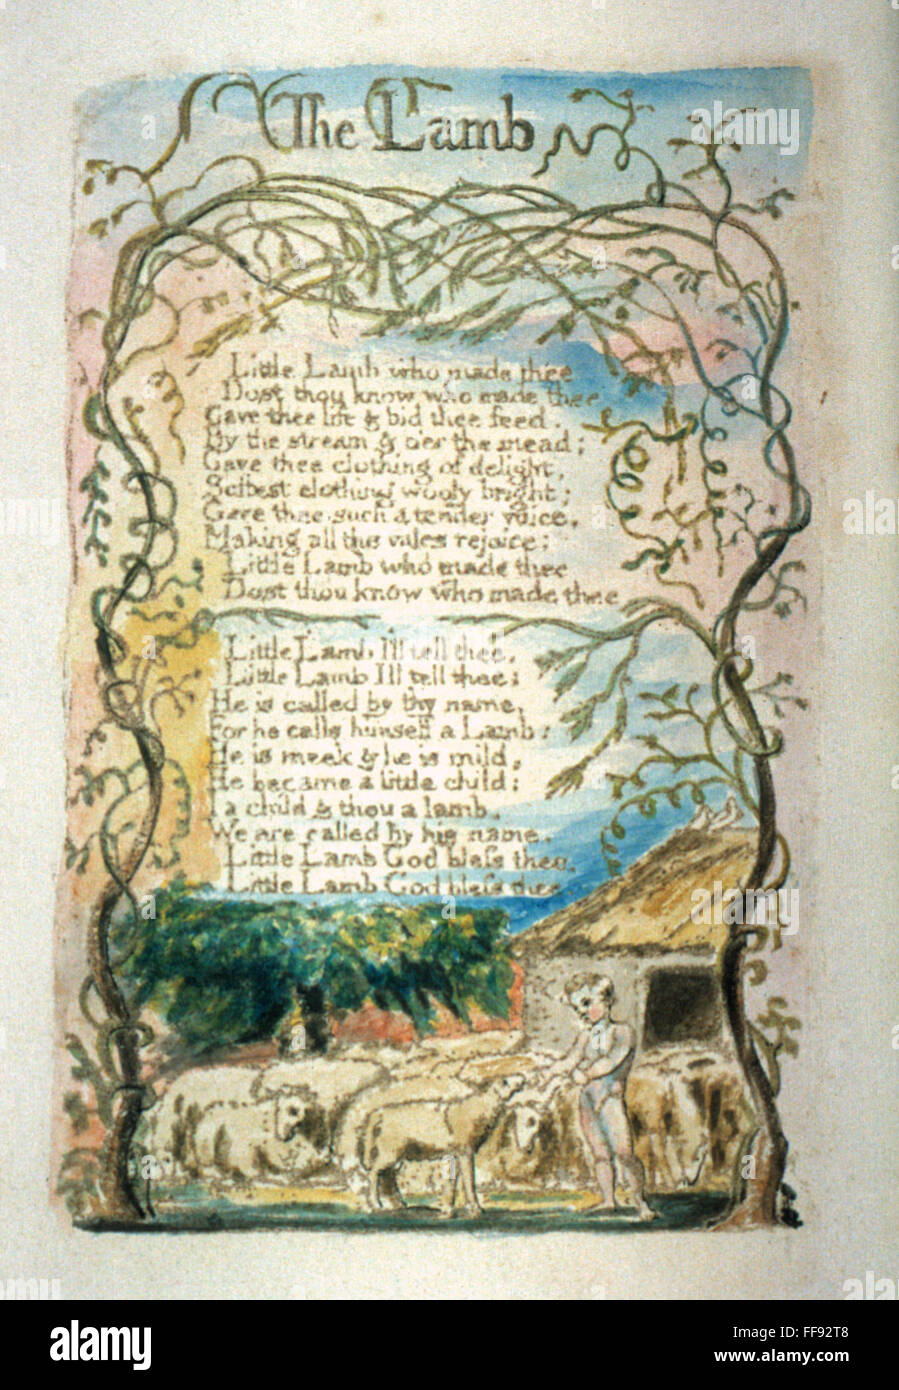 The Lamb
Little Lamb who made thee
Dost thou know who made thee
Gave thee life & bid thee feed.
By the stream & oer the mead;
Gave thee clothing of delight,
Softest clothing wooly bright;
Gave thee such a tender voice,
Making all the vales rejoice;
Little Lamb who made thee
Dost thou know who made thee
Little Lamb I'll tell thee,
Little Lamb I'll tell thee;
He is called by thy name,
For he calls himself a Lamb:
He is meek & he is mild,
He became a little child:
I a child & thou a lamb,
We are called by his name.
Little Lamb God bless thee,
Little Lamb God bless thee
alamy stock photo
alamy
Image ID: FF92T8
www.alamy.com